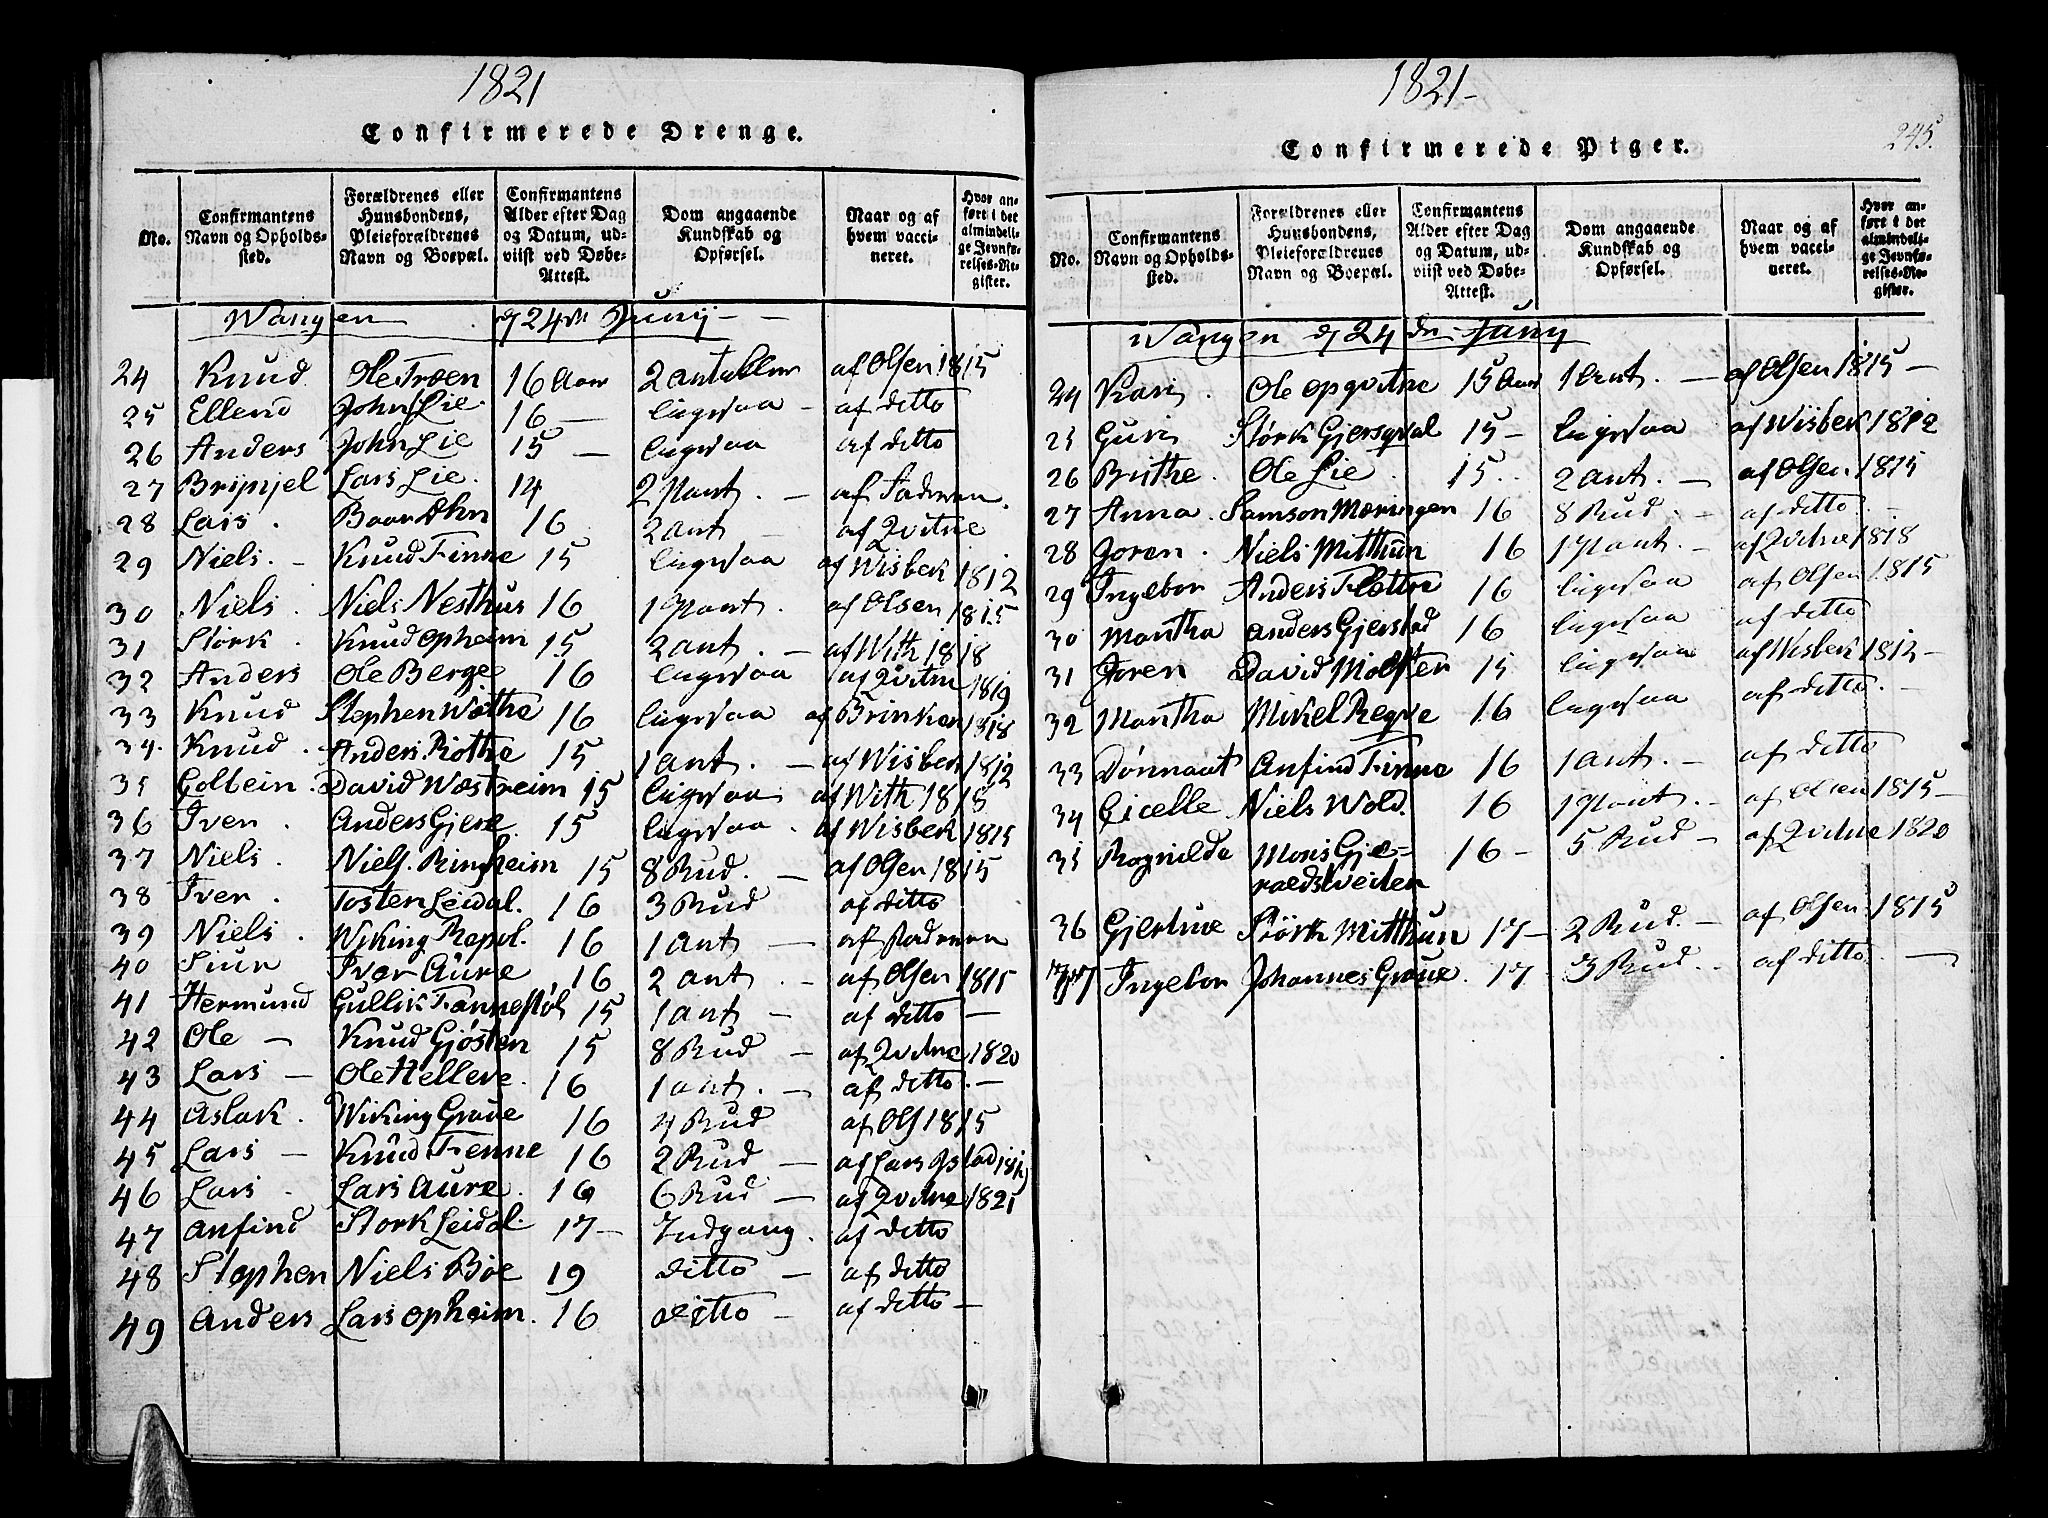 1821
Confirmerede Drenge.
No.
Confirmantens Navn og Opholdssted.
Forældrenes eller Huusbondens, Pleieforældrenes Navn og Boepæl.
Confirmantens Alder efter Dag og Datum, udviist ved Døbe-Attest.
Dom angaaende Kundskab og Opførsel.
Naar og af hvem vaccineret.
Hvor anført i det almindelige Jevnførelses-Register.
Wangen d 24de Junij
24 Knud Ole Troen 16 Aar 2 af Olsen 1815
25 Ellend John Lie 16 — ligesaa — af ditto
26 Anders John Lie 15 — ligesaa af ditto
27 Lars Lie. 14 af Faderen.
28 Lars. Baar 16 2 ant af Qvitne
29 Niels. — Knud Finne 15 ligesaa af Wisbek 1812
30 Niels. Niels Nesthus 16 af Olsen 1815
31 Størk. Knud Opheim 15 2 ant. — af With 1818
32 Anders Ole Berge 16 ligesaa af Qvitne 1819
33 Knud Stephen Wøthe 16 ligesaa af Brinken 1818
34. Knud. Anders Rothe 15 1 ant. — af Wisbek 1812
35 Golbein. David Wæstreim 15 ligesaa af With 1818
36 Iver. Anders Gjere. 15 ligesaa. af Wisbek 1815
37 Niels. Niels. Ringheim 15 8 Bud. — af Olsen 1815
38 Iver. Tosten Leidal. 16 3 Bud af ditto
39 Niels. Wiking Repol. 16 1 ant — af Faderen
40 Siur Iver Aure 16 2 ant. — af Olsen 1815
41 Hermund Gullik Fennestøl 15 1 ant — af ditto —
42 Ole — Knud Gjøsten 15 8 Bud — af Qvitne 1820
43 Lars — Ole Helleve. 16 1 ant. — af ditto. —
44 Aslak. Wiking Grove 16 4 Bud af Ols 1815
45 Lars — Knud Fenne 16 2 Bud — af Lars
46 Lars. Lars Aure. 16 6 Bud — af Qvitne 1821
47 Anfind Stork Leidal. 17 — Indgang. af ditto
48 Stephen Niels Bøe 19 ditto — af ditto
49 Anders Lars Opheim. 16 ditto — af ditto —
1821 —
245.
Confirmerede Piger.
No.
Confirmantens Navn og Opholdssted.
Forældrenes eller Huusbondens, Pleieforældrenes Navn og Boepæl.
Confirmantens Alder efter Dag og Datum, udviist ved Døbe-Attest.
Dom angaaende Kundskab og Opførsel.
Naar og af hvem vaccineret.
Hvor anført i det almindelige Jevnførelses-Register.
Wangen d 24 de Juny
24 Kari. Ole Opqvitne 15 Aar 1 Ant. — af Olsen 1815 —
25 Guri Størk Gjersqval 15 — ligesaa af Wisbek 1812
26 Brithe. Ole Lie. 15.. 2 ant. — af Olsen 1815
27 Anna. Samson Mæringen 16 8 Bud. — af ditto. —
28 Joren. Niels Mitthun 16 af Qvitne 1818
29 Ingebor Anders Flattre 16 ligesaa af Olsen 1815
30 Mantha Anders Gjerstad 16 ligesaa af ditto
31 Joren David Mølster 15 ligesaa af Wisbek 1812 —
32 Mantha Mikel Reqve 16 ligesaa af ditto. —
33 Anfind Finne 16 1 ant. — af ditto
34 Cicelle Niels Wold. 16 af Olsen 1815 —
35 Rognilde Mons Gjeraldstveiten 16 — 5 Bud — af Qvitne 1820
36 Gjertrue Størk Mitthun 17 — 2 Bud. — af Olsen 1815
37 Ingebor Johannes Grove. 17 3 Bud.. af ditto. —